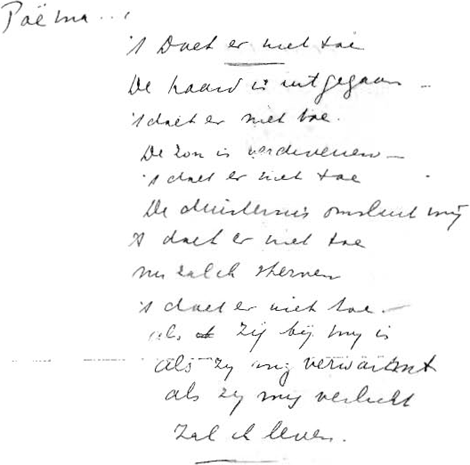 Poëma...
's Doet er niet toe
De haard is uitgegaan -
's doet er niet toe.
De zon is verdwenen -
's doet er niet toe
De duisternis omsluit mij
's doet er niet toe
nu zal ik sterven
's doet er niet toe. -
als zij bij mij is
als zij mij verwarmt
als zij mij verlicht
zal ik leven.